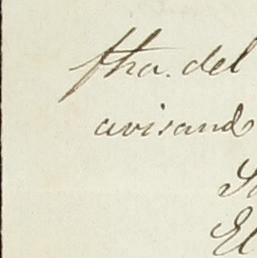 ftha. del
avisand
El